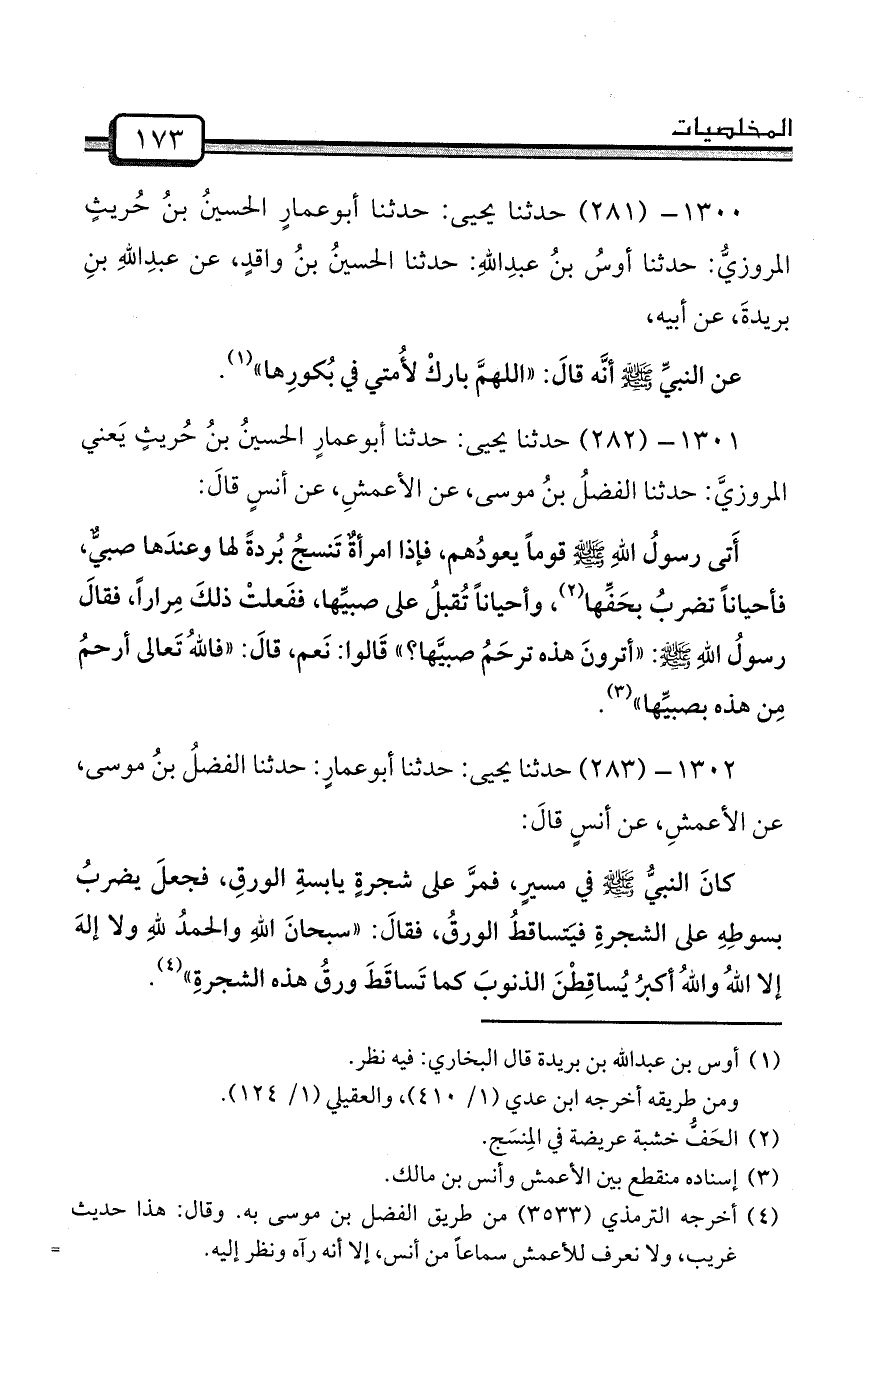 المخلصيات
١٧٣
١٣٠٠- (٢٨١) حدثنا يحيى: حدثنا أبوعمارٍ الحسينُ بنُ حُريثٍ
المروزيُّ: حدثنا أوسُ بنُ عبدِاللهِ: حدثنا الحسينُ بنُ واقدٍ، عن عبدِاللهِ بنِ
بريدةَ، عن أبيه،
عن النبيِّ ﷺ أنَّه قالَ: «اللهمَّ باركْ لأُمتي في بُكورِها»(١).
١٣٠١- (٢٨٢) حدثنا يحيى: حدثنا أبوعمارٍ الحسينُ بنُ حُريثٍ يَعني
المروزيَّ: حدثنا الفضلُ بنُ موسى، عن الأعمشِ، عن أنسٍ قالَ:
أَتى رسولُ اللهِ ﷺ قوماً يعودُهم، فإذا امرأةٌ تَنسجُ بُردةً لها وعندَها صبيٌّ،
فأحياناً تضربُ بحَفِّها(٢)، وأحياناً تُقبلُ على صبيِّها، ففَعلتْ ذلكَ مِراراً، فقالَ
رسولُ اللهِ ﷺ: «أترونَ هذه ترحَمُ صبيَّها؟» قَالوا: نَعم، قالَ: «فاللهُ تَعالى أرحمُ
مِن هذه بصبيِّها»(٣).
١٣٠٢- (٢٨٣) حدثنا يحيى: حدثنا أبوعمارٍ: حدثنا الفضلُ بنُ موسى،
عن الأعمشِ، عن أنسٍ قالَ:
كانَ النبيُّ ﷺ في مسيرٍ، فمرَّ على شجرةٍ يابسةِ الورقِ، فجعلَ يضربُ
بسوطِهِ على الشجرةِ فيَتساقطُ الورقُ، فقالَ: «سبحانَ اللهِ والحمدُ للهِ ولا إلهَ
إلا اللهُ واللهُ أكبرُ يُساقِطْنَ الذنوبَ كما تَساقَطَ ورقُ هذه الشجرةِ»(٤).
(١) أوس بن عبدالله بن بريدة قال البخاري: فيه نظر.
ومن طريقه أخرجه ابن عدي (١/ ٤١٠)، والعقيلي (١/ ١٢٤).
(٢) الحَفُّ خشبة عريضة في المِنسَج.
(٣) إسناده منقطع بين الأعمش وأنس بن مالك.
(٤) أخرجه الترمذي (٣٥٣٣) من طريق الفضل بن موسى به. وقال: هذا حديث
غريب، ولا نعرف للأعمش سماعاً من أنس، إلا أنه رآه ونظر إليه. =